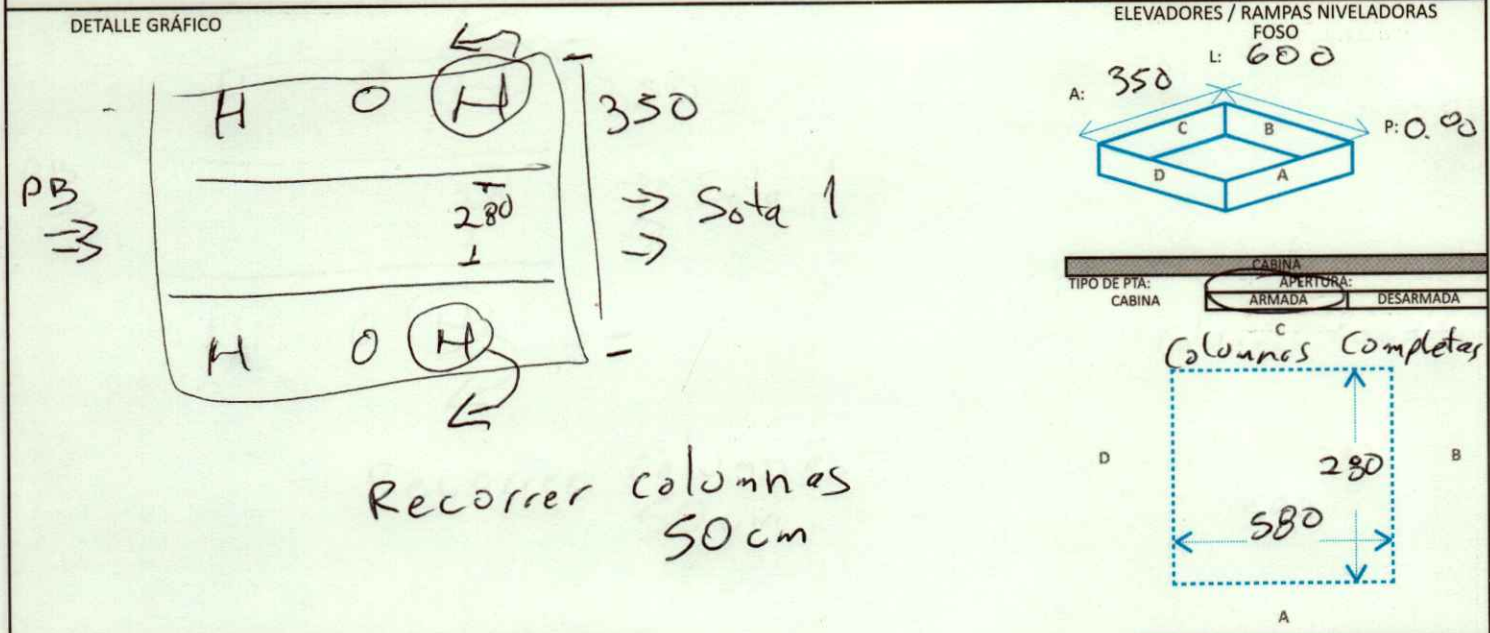 DETALLE GRÁFICO
H O H
350
PB
280
→ Sota 1
H O H
Recorrer columnas
50 cm
ELEVADORES / RAMPAS NIVELADORAS
FOSO
L: 600
A: 350
P: 0.00
C B
D A
CABINA
TIPO DE PTA: APERTURA:
CABINA ARMADA DESARMADA
C
Columnas Completas
D 280 B
580
A